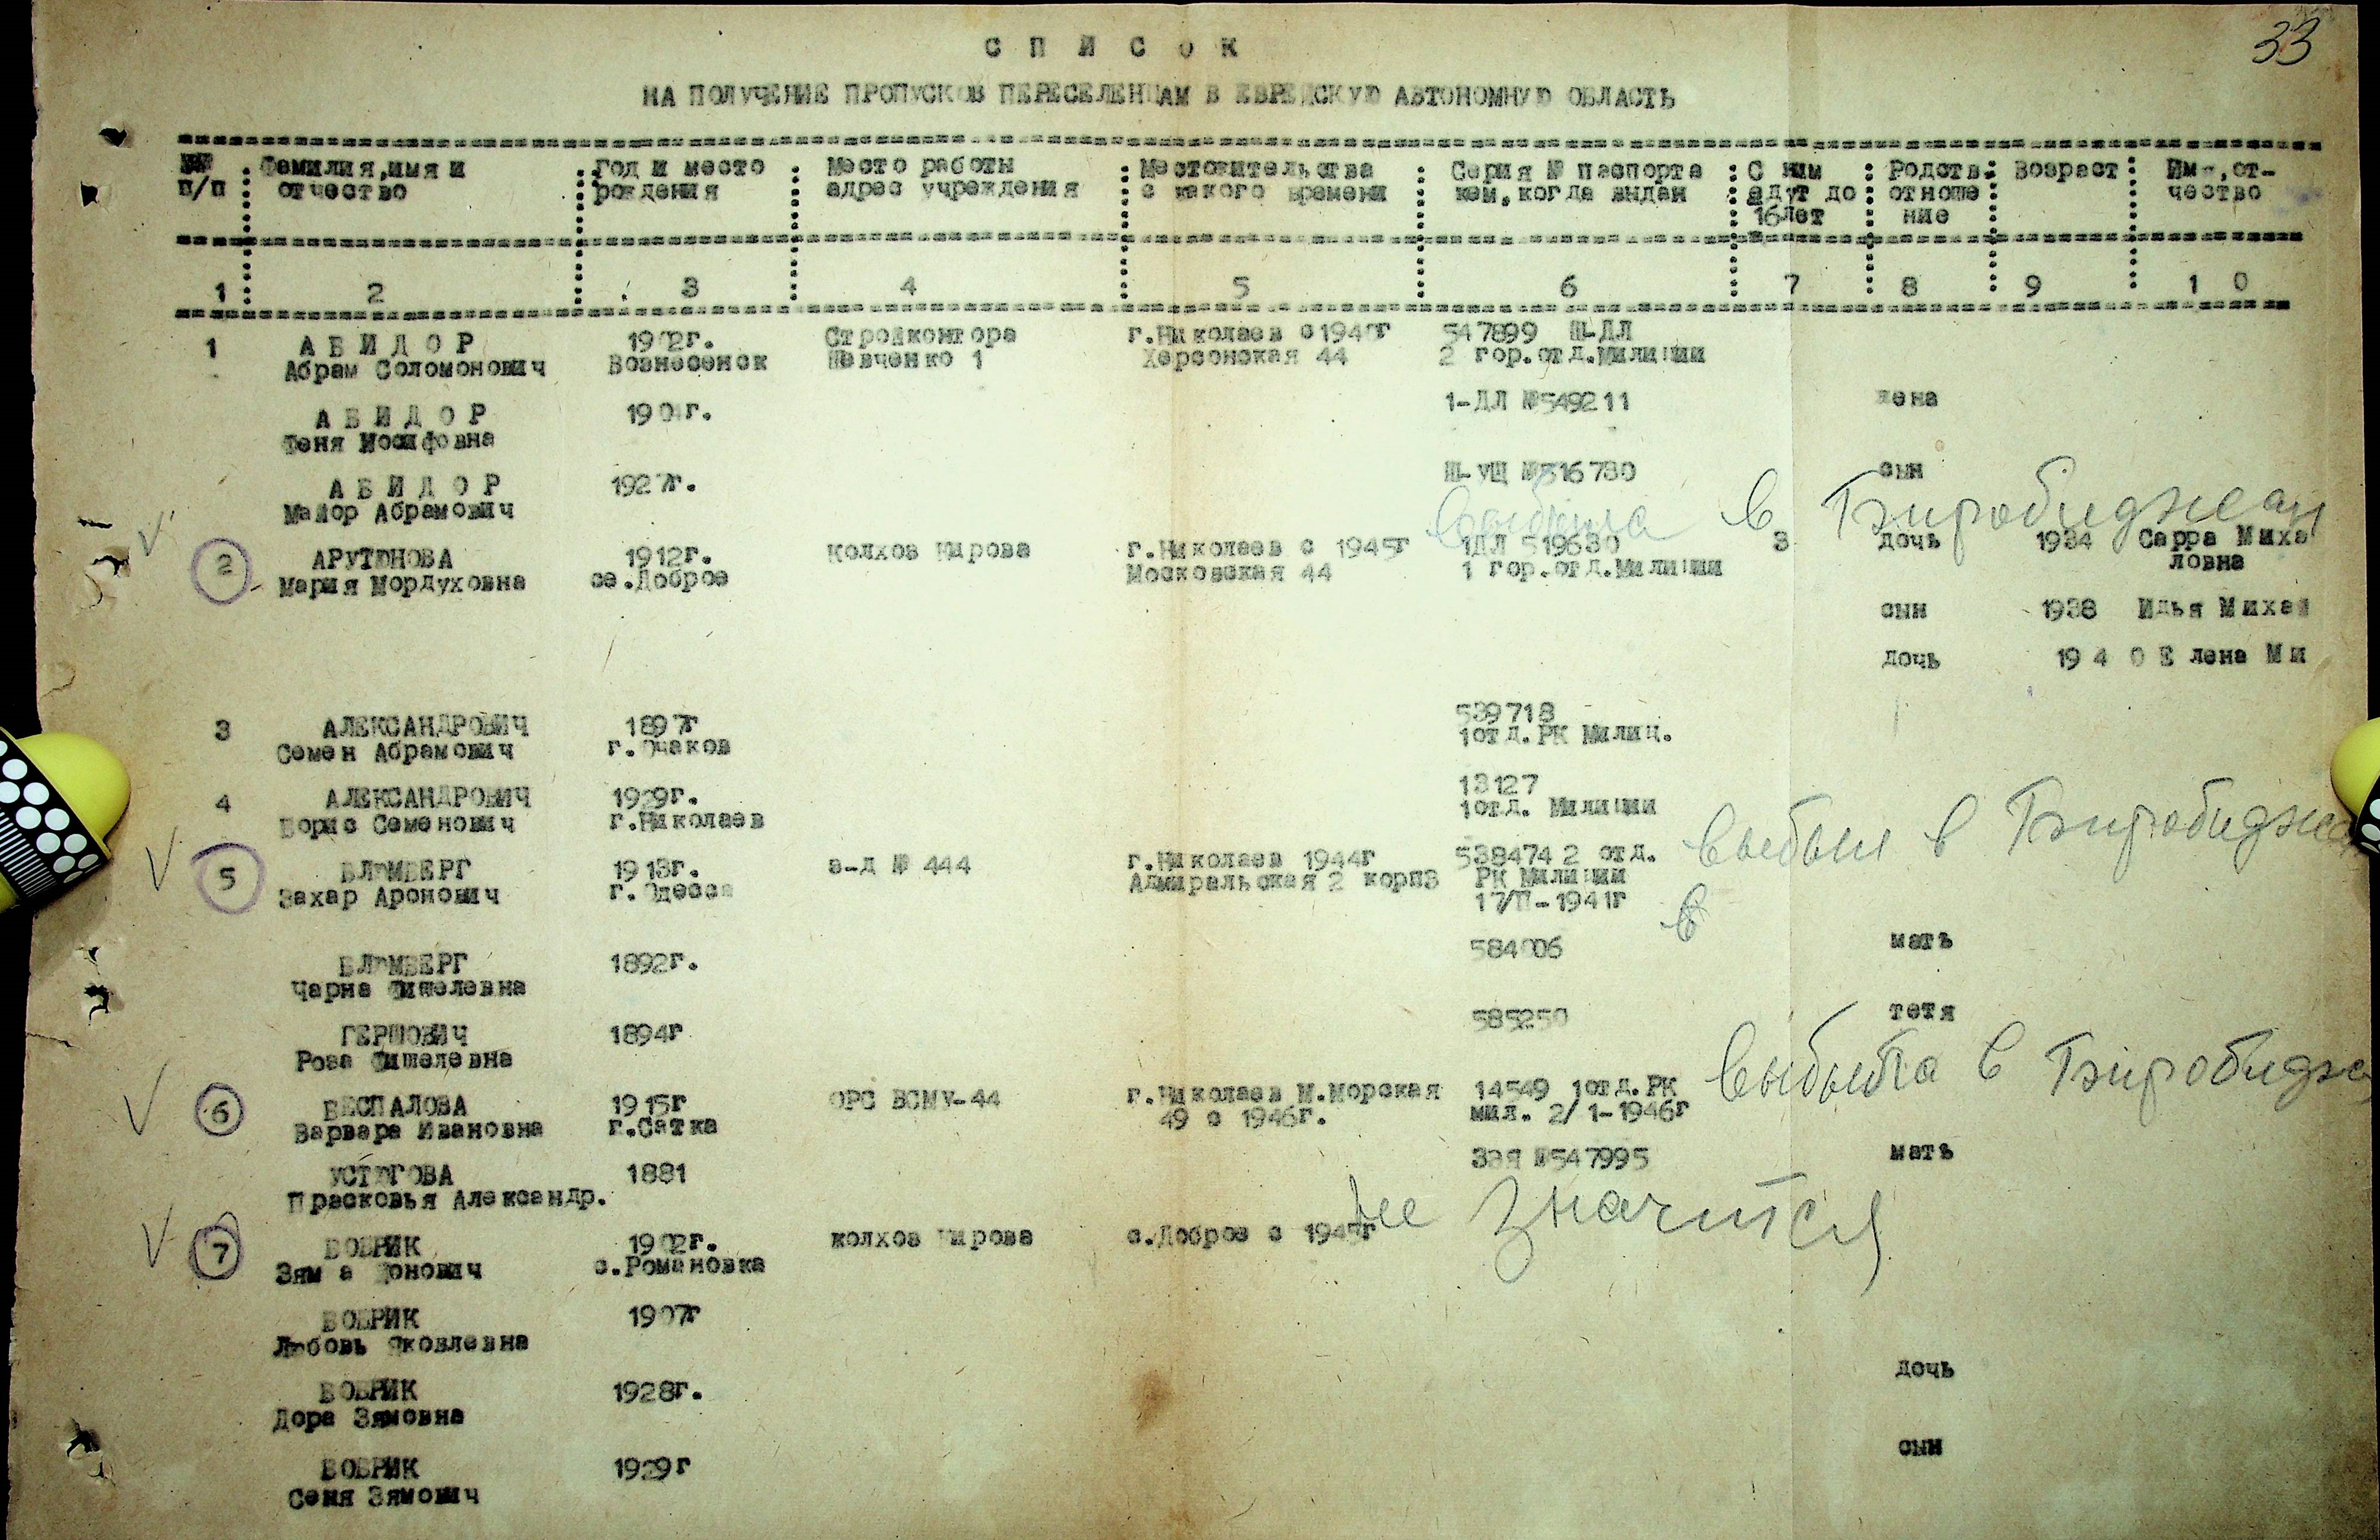 33
СПИСОК
НА ПОЛУЧЕНИЕ ПРОПУСКОВ ПЕРЕСЕЛЕНЦАМ В ЕВРЕЙСКУЮ АВТОНОМНУЮ ОБЛАСТЬ
№№ п/п
Фамилия,имя и отчество
Год и место рождения
Место работы адрес учреждения
Местожительства с какого времени
Серия № паспорта кем,когда выдан
С ним едут до 16лет
Родств. отноше ние
Возраст
Имя,от- чество
1 2 3 4 5 6 7 8 9 10
1 АВИДОР 1902г. Стройконтора г.Николаев с 194 г 547899 Ш-ДЛ
Абрам Соломонович Вознесенск Шевченко 1 Херсонская 44 2 гор.отд.Милиции
АВИДОР 190 г. 1-ДЛ №549211 жена
Феня Иосифовна
АВИДОР 1927г. Ш-УЩ №516780 сын
Майор Абрамович
выбыла в Биробиджан
2 АРУТЮНОВА 1912г. колхоз Кирова г.Николаев с 1945г 1ДЛ 519630 3 дочь 1934 Сарра Миха
Мария Мордуховна се.Доброе Московская 44 1 гор.отд.Милиции ловна
сын 1938 Илья Михай
дочь 1940 Елена Ми
3 АЛЕКСАНДРОВИЧ 1897г 539718
Семен Абрамович г.Очаков 1отд.РК Милиц.
4 АЛЕКСАНДРОВИЧ 1929г. 13127
Борис Семенович г.Николаев 1отд. Милиции
выбыл в Бироbиджа
5 БЛЮМБЕРГ 1913г. з-д № 444 г.Николаев 1944г 538474 2 отд.
Захар Аронович г.Одесса Адмиральская 2 корп3 РК Милиции
17/П-1941г
в
БЛЮМБЕРГ 1892г. 584006 мать
Чарна Фишелевна
ГЕРШОВИЧ 1894г 585250 тетя
Роза Фишелевна
выбыла в Биробидж
6 БЕСПАЛОВА 1915г ОРС ВСМУ-44 г.Николаев М.Морская 14549 1отд.РК
Варвара Ивановна г.Сатка 49 с 1946г. мил. 2/1-1946г
УСТЮГОВА 1881 Зая №547995 мать
Прасковья Александр.
не значится
7 БОБРИК 1902г. колхоз Кирова с.Доброе с 1945г
Зяма онович с.Романовка
БОБРИК 1907г
Любовь Яковлевна
БОБРИК 1928г. дочь
Дора Зямовна
БОБРИК 1929г сын
Сеня Зямович